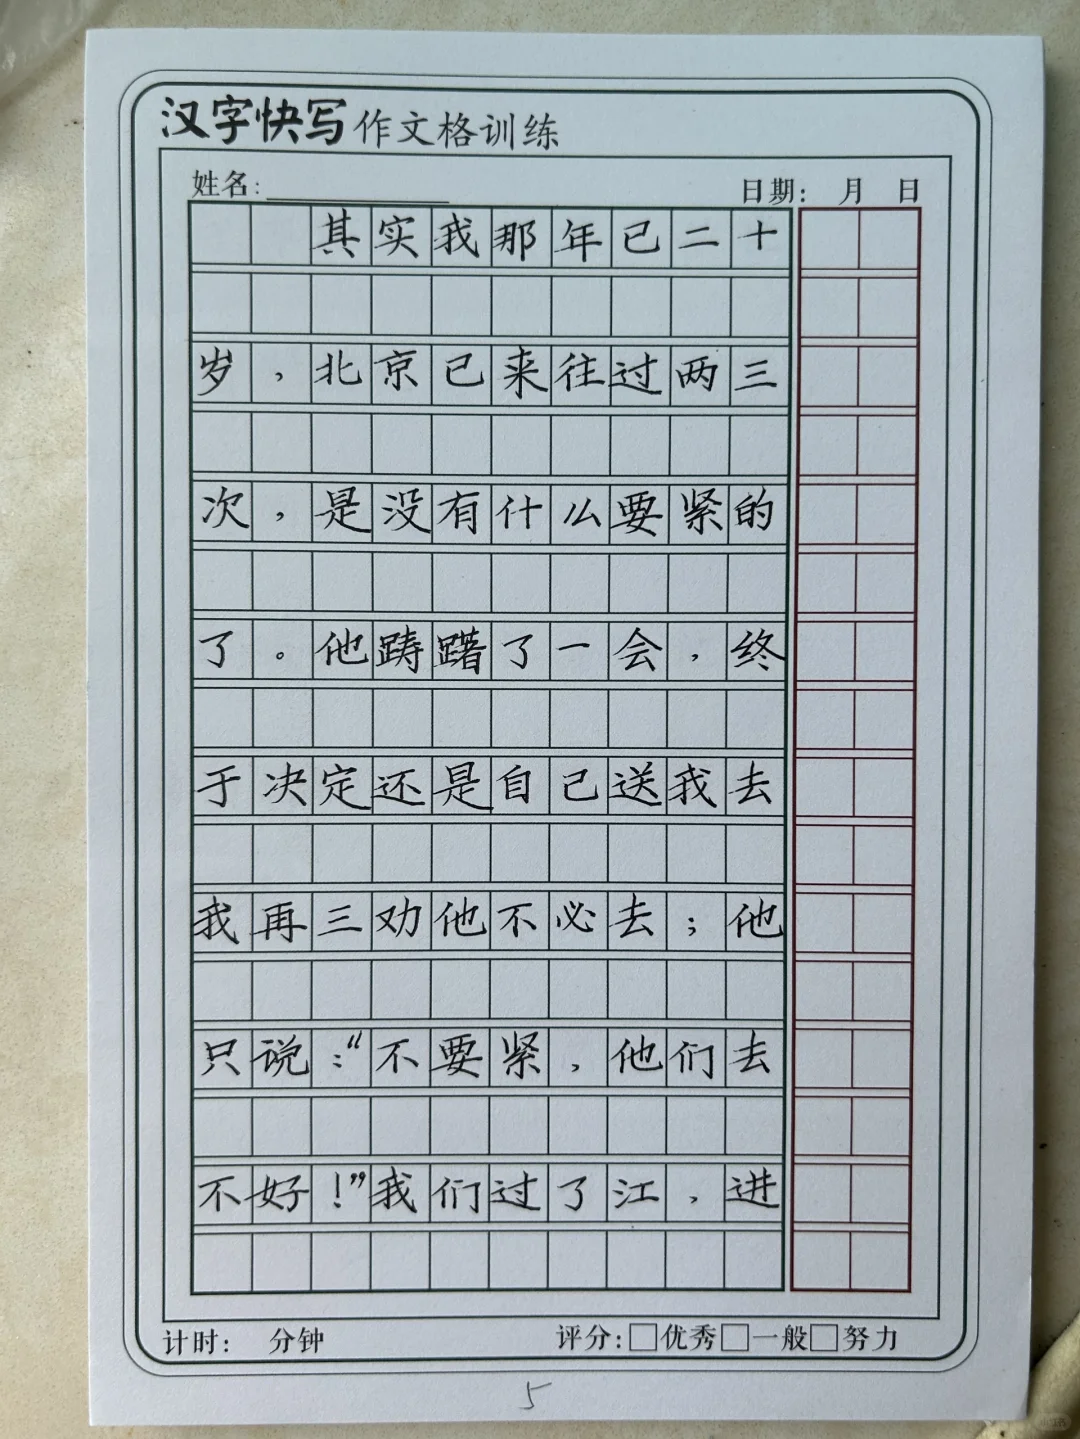 汉字快写作文格训练
姓名:
日期: 月 日
其实我那年已二十
岁，北京已来往过两三
次，是没有什么要紧的
了。他踌躇了一会，终
于决定还是自己送我去
我再三劝他不必去；他
只说：“不要紧，他们去
不好！”我们过了江，进
计时: 分钟
评分:□优秀□一般□努力
5